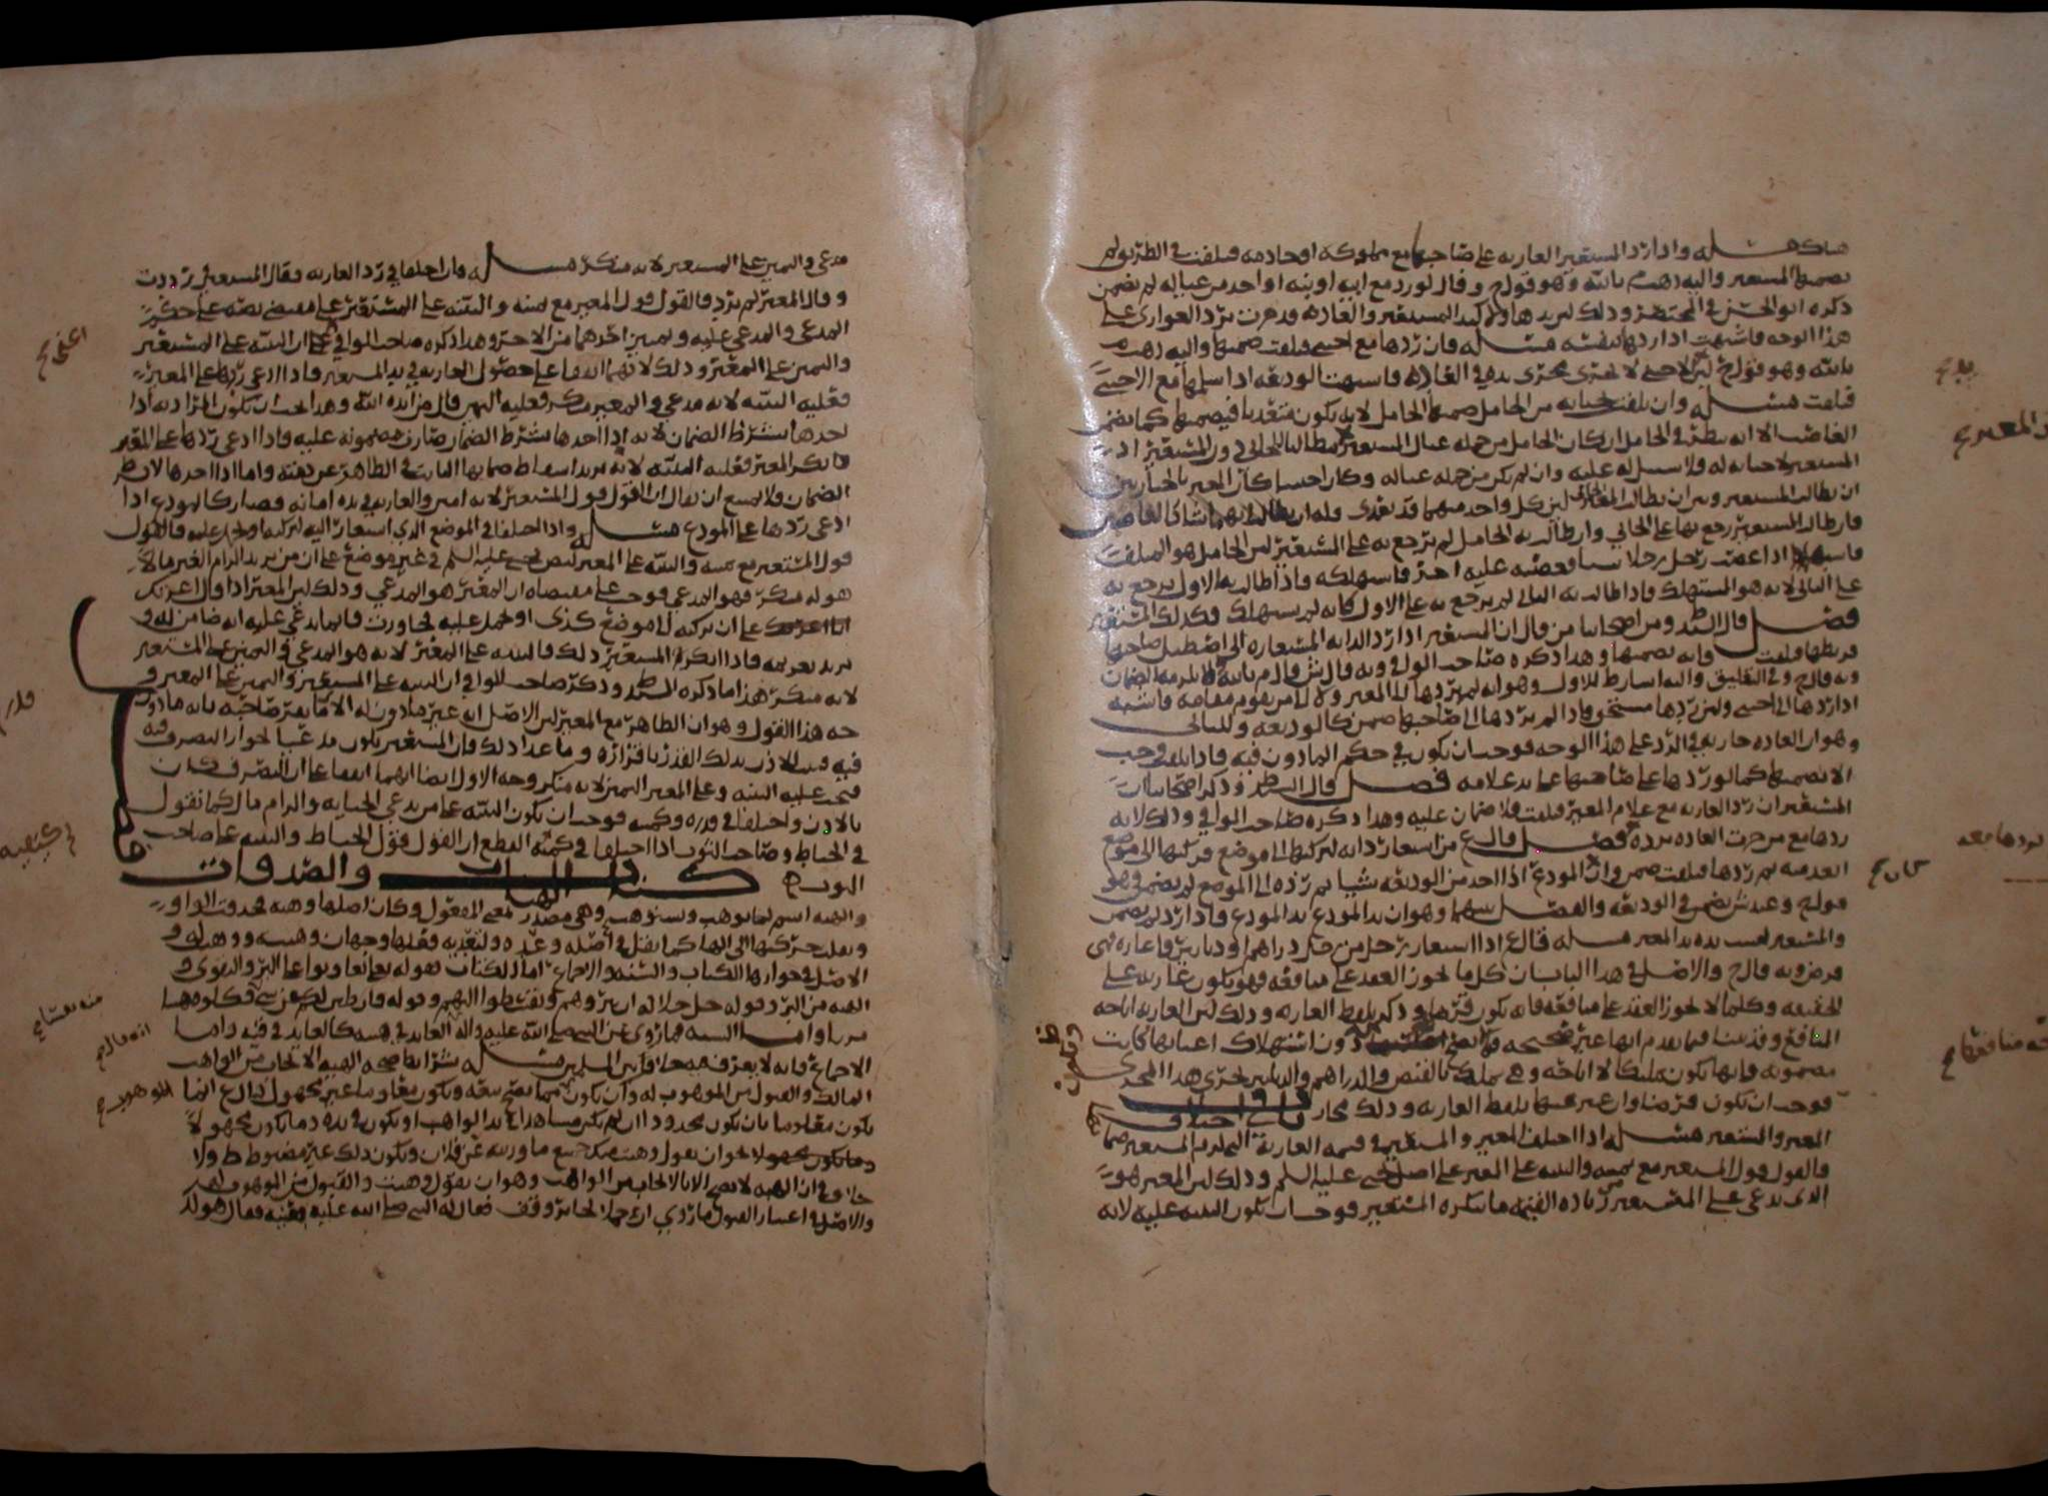 هناك مسئله واذا رد المستعير العاريه على صاحبها مع مملوكه او خادمه فتلفت في الطريق لم
يضمنها المستعير واليه ذهب م بالله وهو قول ح وقال لو رد مع ابيه او ابنه او واحد من عياله لم يضمن
ذكره ابو الحسن في المختصر وذلك لان يد هاولا كيد المستعير والعاده قد جرت برد العواري على
هذا الوجه فاشبهت اذا ردها بنفسه مسئله فان ردها مع اجنبي فتلفت ضمنها واليه ذهب م
بالله وهو قول ح لان الاجنبي لا تجري مجرى يده في العاده فاشبهت الوديعه اذا سلمها مع الاجنبي
فتلفت مسئله وان تلفت بجنايه من الحامل ضمنها الحامل لانه يكون متعديا فيضمنها كما يضمن
الغاصب الا انه ينظر في الحامل ان كان الحامل من جمله عيال المستعير مطالبا للجاني دون المستعير اذ
المستعير لا جنايه له فلا سبيل له عليه وان لم يكن من جمله عياله وكان اجنبيا كان المعير بالخيار بين
ان يطالب المستعير وبين ان يطالب الجاني لان كل واحد منهما قد تعدى وله ان يطالب ايهما شا كالغاصبين
فان طالب المستعير رجع بها على الجاني وان طالب به الحامل لم يرجع به على المستعير لان الحامل هو المتلف
فاشبه اذا غصب رجل رجلا شيا فغصبه عليه اخر فاستهلكه فاذا طالب به الاول يرجع به
على الثاني لانه هو المستهلك فاذا طالب به الثاني لم يرجع به على الاول كانه لم يستهلك وكذلك المستعير
فصل قال ط ومن اصحابنا من قال ان المستعير اذا رد الدابه المستعاره الى اصطبل صاحبها
فربطها فتلفت فانه يضمنها وهذا ذكره صاحب الوافي وبه قال ش وقال م بالله لا يلزمه الضمان
وبه قال ح وفي التعليق واليه اشار ط للاول وهو انه لم يردها الى المعير ولا الى من يقوم مقامه فاشبه
اذا ردها الى اجنبي وليس بردها مستحق فاذا لم يردها الى صاحبها ضمن كالوديعه وللثاني
وهو ان العاده جاريه في الرد على هذا الوجه فوجب ان يكون في حكم الماذون فيه فاذا تلفت وجب
الا يضمنها كما لو ردها على صاحبها على يد غلامه فصل قال ط وذكر اصحابنا ان
المستعير ان رد العاريه مع غلام المعير فتلفت فلا ضمان عليه وهذا ذكره صاحب الوافي وذلك لانه
ردها مع من جرت العاده برده فصل قال ع من استعار دابه ليركبها الى موضع فركبها الى موضع
ابعد منه ثم ردها فتلفت ضمن وان المودع اذا اخذ من الوديعه شيا ثم رده الى الموضع لم يضمن وهو
قول ح وعند ش يضمن في الوديعه والفصل بينهما وهو ان يد المودع يد المودع فاذا رد لم يضمن
والمستعير ليست يده يد المعير مسئله قال ع اذا استعار رجل من رجل دراهم او دنانير فاعاره فهي
قرض وبه قال ح والاصل في هذا الباب ان كل ما يجوز العقد على منافعه فهو يكون عاريه على
الحقيقه وكلما لا يجوز العقد على منافعه فانه يكون قرضا وذكره بلفظ العاريه وذلك لان العاريه اباحه
المنافع وقد بينا فيما تقدم انها غير صحيحه دون استهلاك اعيانها كانت
مضمونه فانها يكون تمليكا لا اباحه وهي تملك بالقبض والدراهم والدنانير تجري هذا المجرى
فوجب ان تكون قرضا وان عبر عنها بلفظ العاريه وذلك مجاز باب في اختلاف
المعير والمستعير مسئله اذا اختلف المعير والمستعير في قيمه العاريه التي يلزم المستعير ضمانها
فالقول قول المستعير مع يمينه والبينه على المعير على اصل يحيى عليه السلم وذلك لان المعير هو
الذي يدعي على المستعير زياده القيمه ما ينكره المستعير فوجب ان تكون البينه عليه لانه
بده ح
المعير ح
كان ح
لو ردها بعد
منافعه ح
ويكون ظ
مدعي واليمين على المستعير لانه منكر مسئله فان اختلفا في رد العاريه فقال المستعير رددت
وقال المعير لم ترد فالقول قول المعير مع يمينه والبينه على المستعير على مقتضى نصه على حكم
المدعي والمدعى عليه ويمين احدهما من الاخر وهذا ذكره صاحب الوافي على ان البينه على المستعير
واليمين على المعير وذلك لانهما اتفقا على حصول العاريه في يد المستعير فاذا ادعى ردها على المعير
فعليه البينه لانه مدعي والمعير منكر فعليه اليمين قال من ايده الله وهذا يجب ان يكون المراد به اذا
اخذها بشرط الضمان لانه اذا اخذها بشرط الضمان صارت مضمونه عليه فاذا ادعى ردها على المعير
فانكر المعير فعليه البينه لانه يريد اسقاط ضمانها الثابت في الظاهر عن ذمته واما اذا اخذها لا بشرط
الضمان فلا يمتنع ان يقال ان القول قول المستعير لانه امين والعاريه في يده امانه فصار كالمودع اذا
ادعى ردها على المودع مسئله واذا اختلفا في الموضع الذي استعار اليه ليركبه او يحمل عليه فالقول
قول المستعير مع يمينه والبينه على المعير لنص يحيى عليه السلم في غير موضع على ان من يريد الزام الغير مالا
هو له منكر فهو المدعي فوجب على مقتضاه ان المعير هو المدعي وذلك لان المعير اذا قال اعرتك
على ان تركبه الى موضع كذى او تحمل عليه فجاوزت فانما يدعي عليه انه ضامن له و
يريد تغريمه فاذا انكر المستعير ذلك فالبينه على المعير لانه هو المدعي واليمين على المستعير
لانه منكر هذا ما ذكره ط وذكر صاحب الوافي ان البينه على المستعير واليمين على المعير و
جه هذا القول وهو ان الظاهر مع المعير لان الاصل انه غير ماذون له الا ما يقر صاحبه بانه ماذون
فيه فيثبت الاذن بذلك القدر باقراره وما عدا ذلك فان المستعير يكون مدعيا لجواز التصرف فيه
فيجب عليه البينه وعلى المعير اليمين لانه منكر وجه الاول ايضا انهما اتفقا على ان التصرف كان
بالاذن واختلفا في قدره وكميته فوجب ان تكون البينه على من يدعي الجنايه والزام مال كما نقول
في الخياط وصاحب الثوب اذا اختلفا في كميه القطع ان القول قول الخياط والبينه على صاحب
الثوب كتاب الهبات والصدقات
والهبه اسم لما يوهب ويستوهب وهي مصدر بمعنى المفعول وكان اصلها وهبه فحذفت الواو
ونقلت حركتها الى الها كما يفعل في اصله وعده وتعديه فقلنا وجهان وهبته ووهبت له و
الاصل في جوازها الكتاب والسنه والاجماع اما الكتاب فقوله تعالى وتعاونوا على البر والتقوى و
الهبه من البر وقوله جل جلاله ان تبروهم وتقسطوا اليهم وقوله فان طبن لكم عن شي فكلوه هنيا
مريا واما السنه فما روي عن النبي صلى الله عليه واله العايد في هبته كالعايد في قيه واما
الاجماع فانه لا يعرف فيه خلاف بين المسلمين مسئله شرايط صحه الهبه الايجاب من الواهب
المالك والقبول من الموهوب له وان يكون مما يصح بيعه ويكون معلوما غير مجهول قال ع انما
يكون معلوما بان يكون محدودا ان لم يكن مشاهدا في يد الواهب او يكون في يده وما يكون مجهولا
لا يجوز ان يقول وهبت منك جميع ما ورثته عن فلان ويكون ذلك غير مضبوط ط ولا
خلاف في ان الهبه لا تصح الا بالايجاب من الواهب وهو ان يقول وهبت والقبول من الموهوب له
والاصل في اعتبار القبول ما روي ان حمل الحاير وقف فقال له النبي صلى الله عليه بعنيه فقال هو لك
اعني ح
قدر
في كميه
منه بشي ح
انه قال ح
الموهوب ح